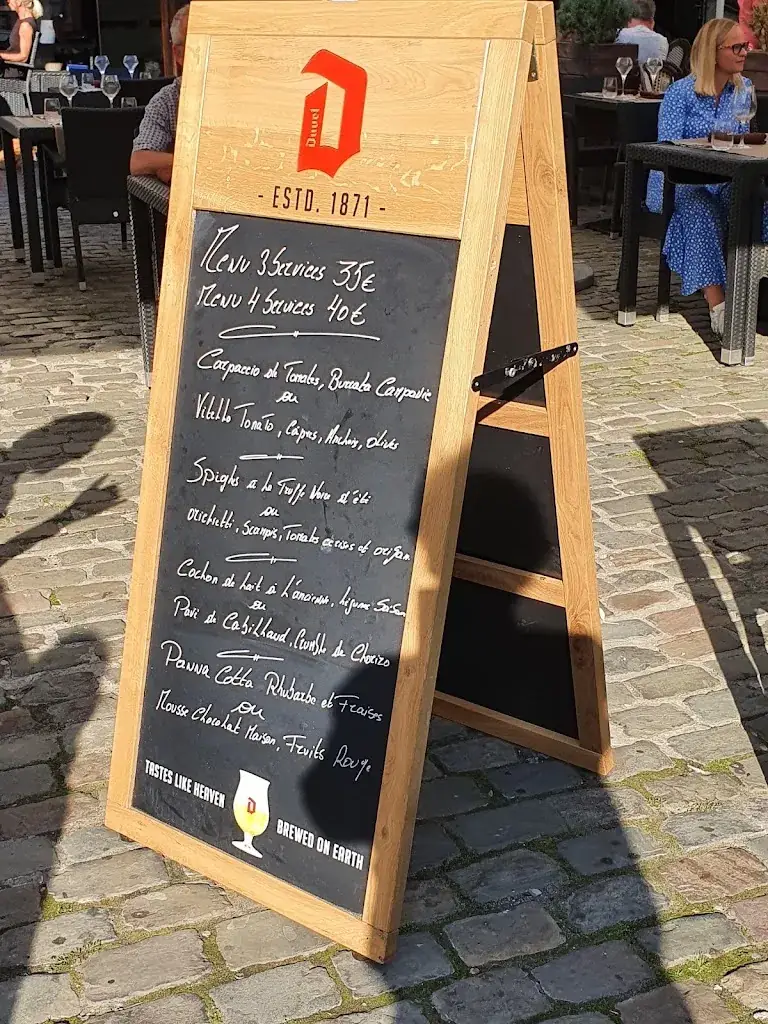 Duvel
- ESTD. 1871 -
Menu 3 Services 35€
Menu 4 Services 40€
Carpaccio de Tomates, Burrata Campanie
ou
Vitello Tonato, Câpres, Anchois, olives
Spighe a la Truffe Noire d'été
ou
orichietti, Scampis, Tomates cerises et origan
Cochon de lait à l'ancienne, légumes Saison
ou
Pavé de Cabillaud, Crumble de Chorizo
Panna Cotta Rhubarbe et Fraises
ou
Mousse Chocolat Maison, Fruits Rouge
TASTES LIKE HEAVEN
BREWED ON EARTH